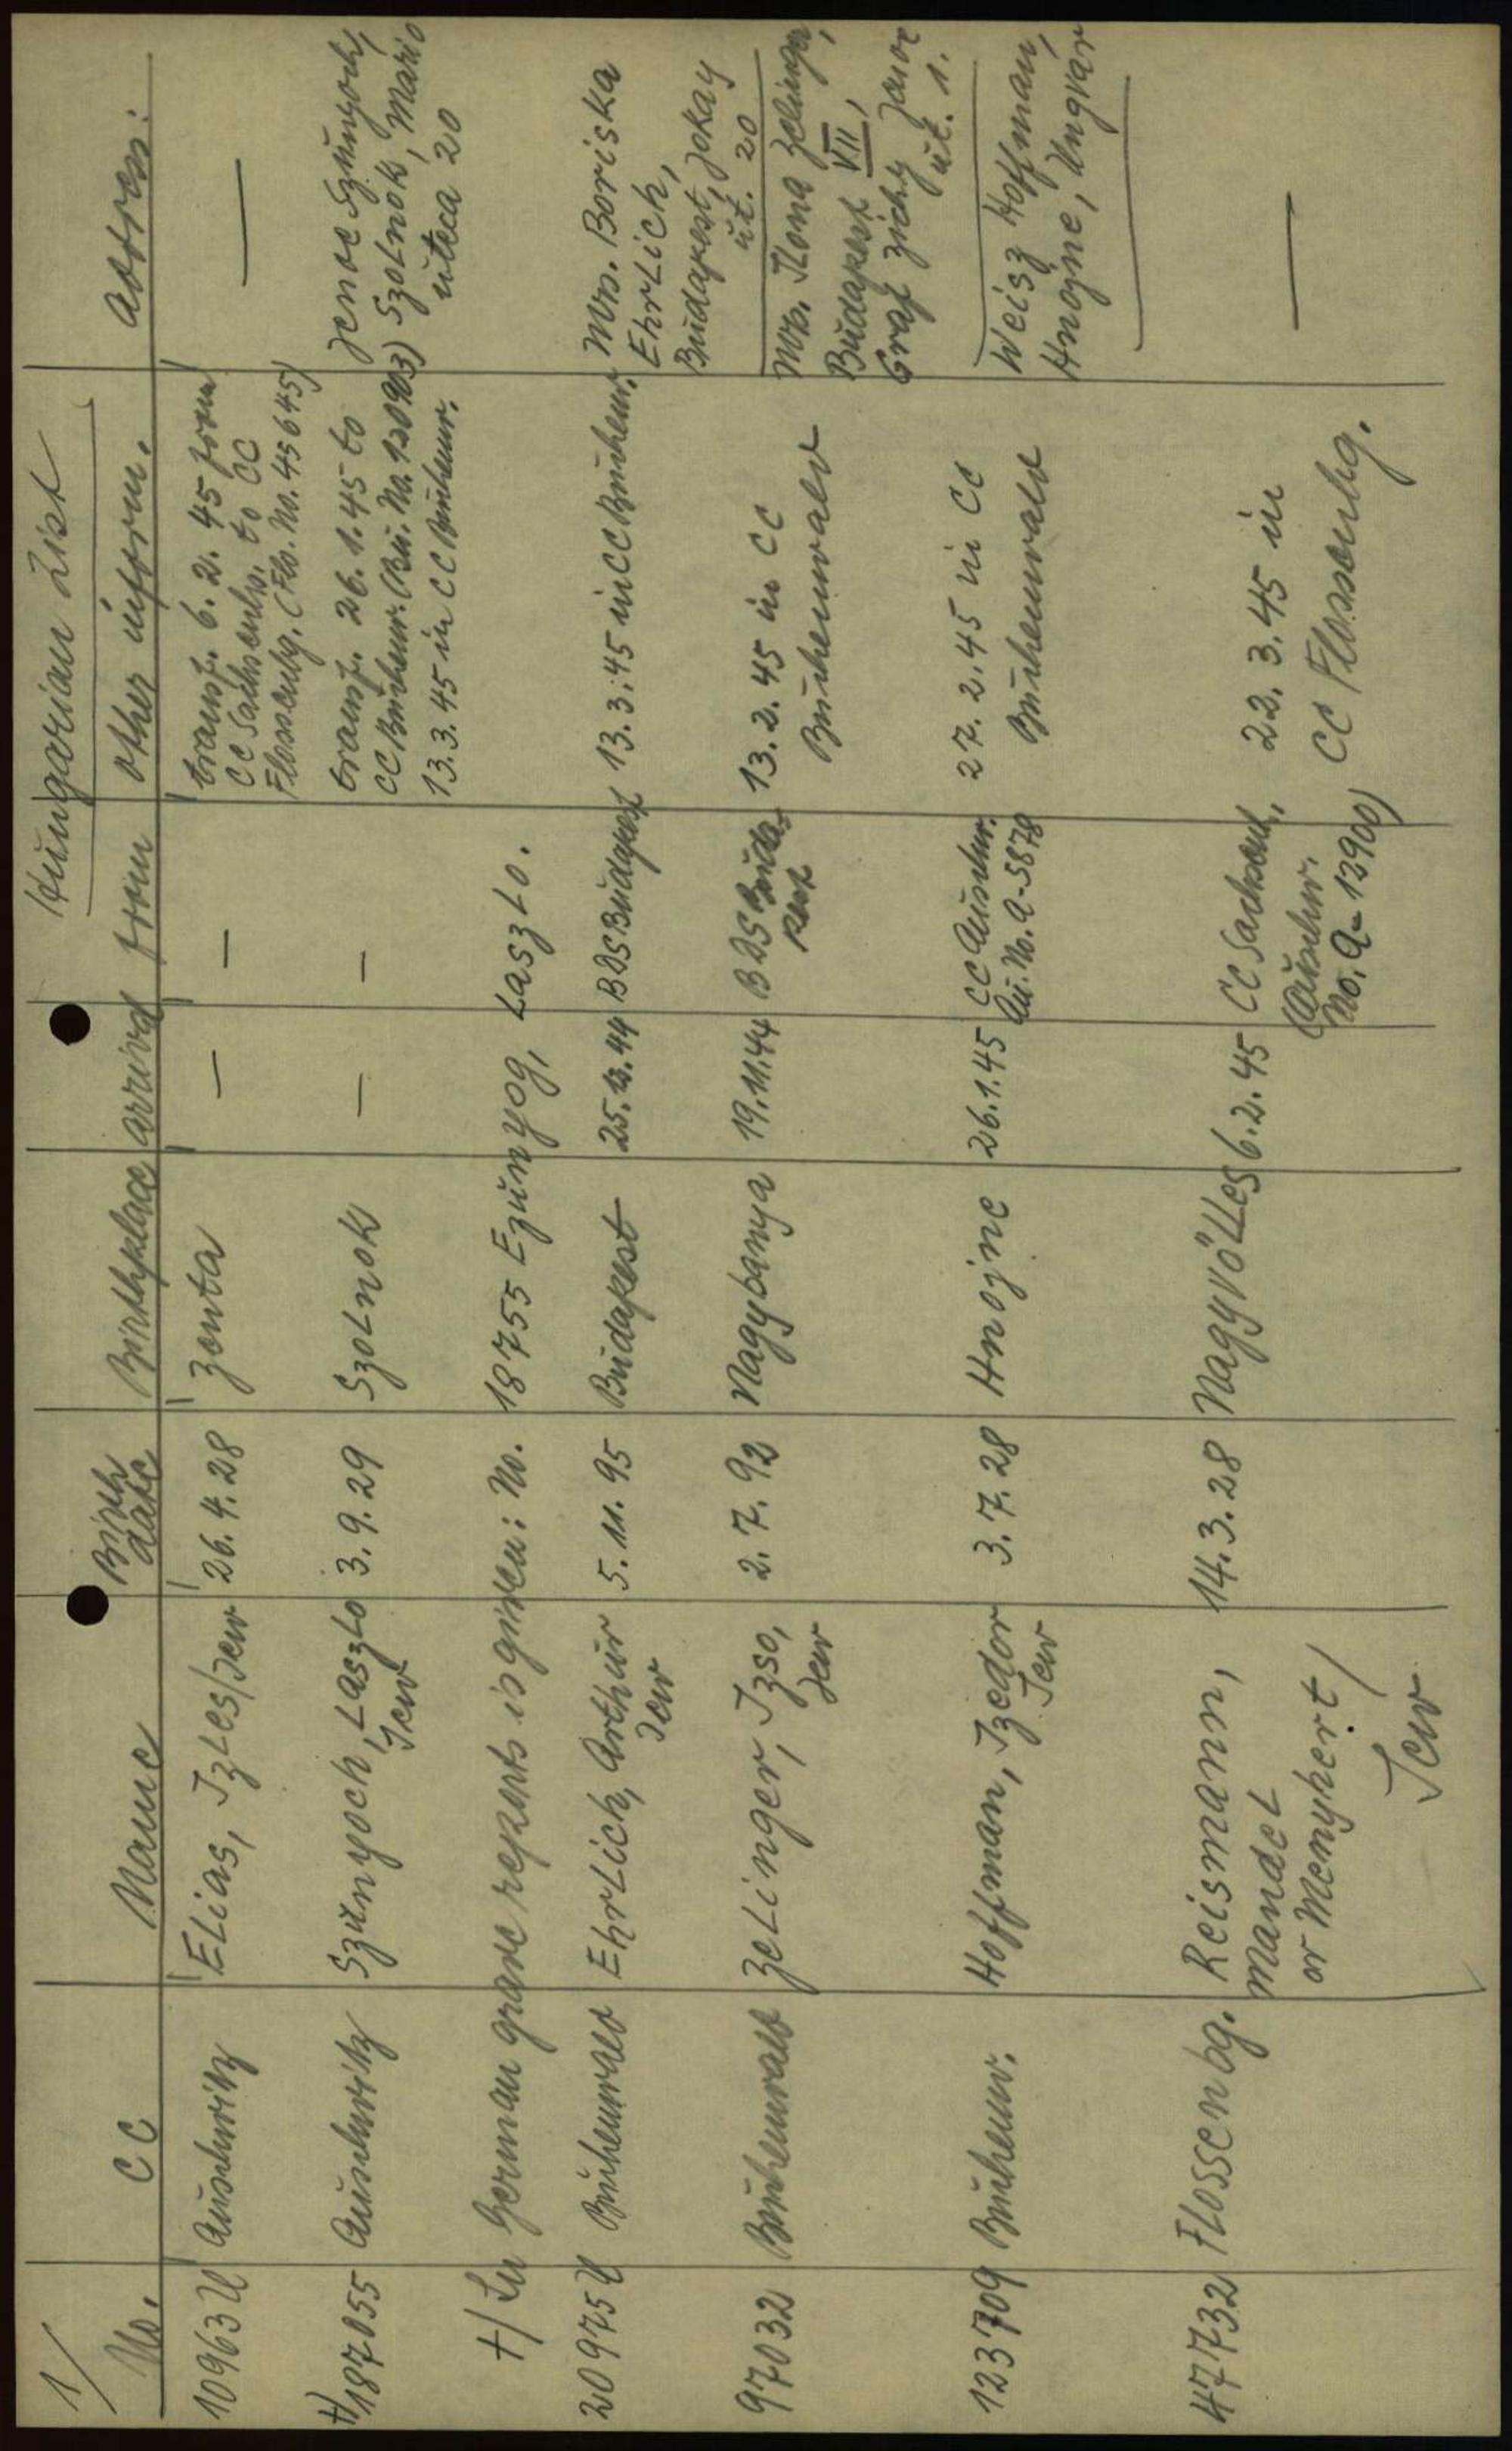 1/
Hungarian List
No. CC Name Birth date Birthplace arrival from other inform. Address:
10963 U Auschwitz Elias, Izles/Jew 26.4.28 Zenta — — transf. 6.2.45 from —
CC Sachsenhs. to CC
Flossenbg. (Flo. No. 45645)
+) 187055 Auschwitz Szünyoch, Laszlo 3.9.29 Szolnok — — transf. 26.1.45 to Jenoe Szünyoch,
Jew CC Buchenw. (Bu. No. 120903) Szolnok, Mario
13.3.45 in CC Buchenw. utcca 20
+/ In German grave reports is given: No. 18755 Ezünyog, Laszlo.
20975 U Buchenwald Ehrlich, Arthur 5.11.95 Budapest 25.12.44 BDS Budapest 13.3.45 in CC Buchenw. Mrs. Boriska
Jew Ehrlich,
Budapest, Jokay
ut. 20
97032 Buchenwald Zelinger, Izso, 2.7.92 Nagybanya 19.11.44 BDS Buda- 13.2.45 in CC Mrs. Ilona Zelinger,
Jew pest Buchenwald Budapest VII,
Graf Zichy Jenoe
ut. 1.
123709 Buchenw. Hoffman, Izedor 3.7.28 Hnojne 26.1.45 CC Auschw. 27.2.45 in CC Weisz Hoffman,
Jew Au. No. A-5878 Buchenwald Hnojne, Ungvár
47732 Flossenbg. Reismann, 14.3.28 Nagyvölles 6.2.45 CC Sachsenh. 22.3.45 in —
Mandel (Auschw. CC Flossenbg.
or Menyhert/ No. A-12900)
Jew